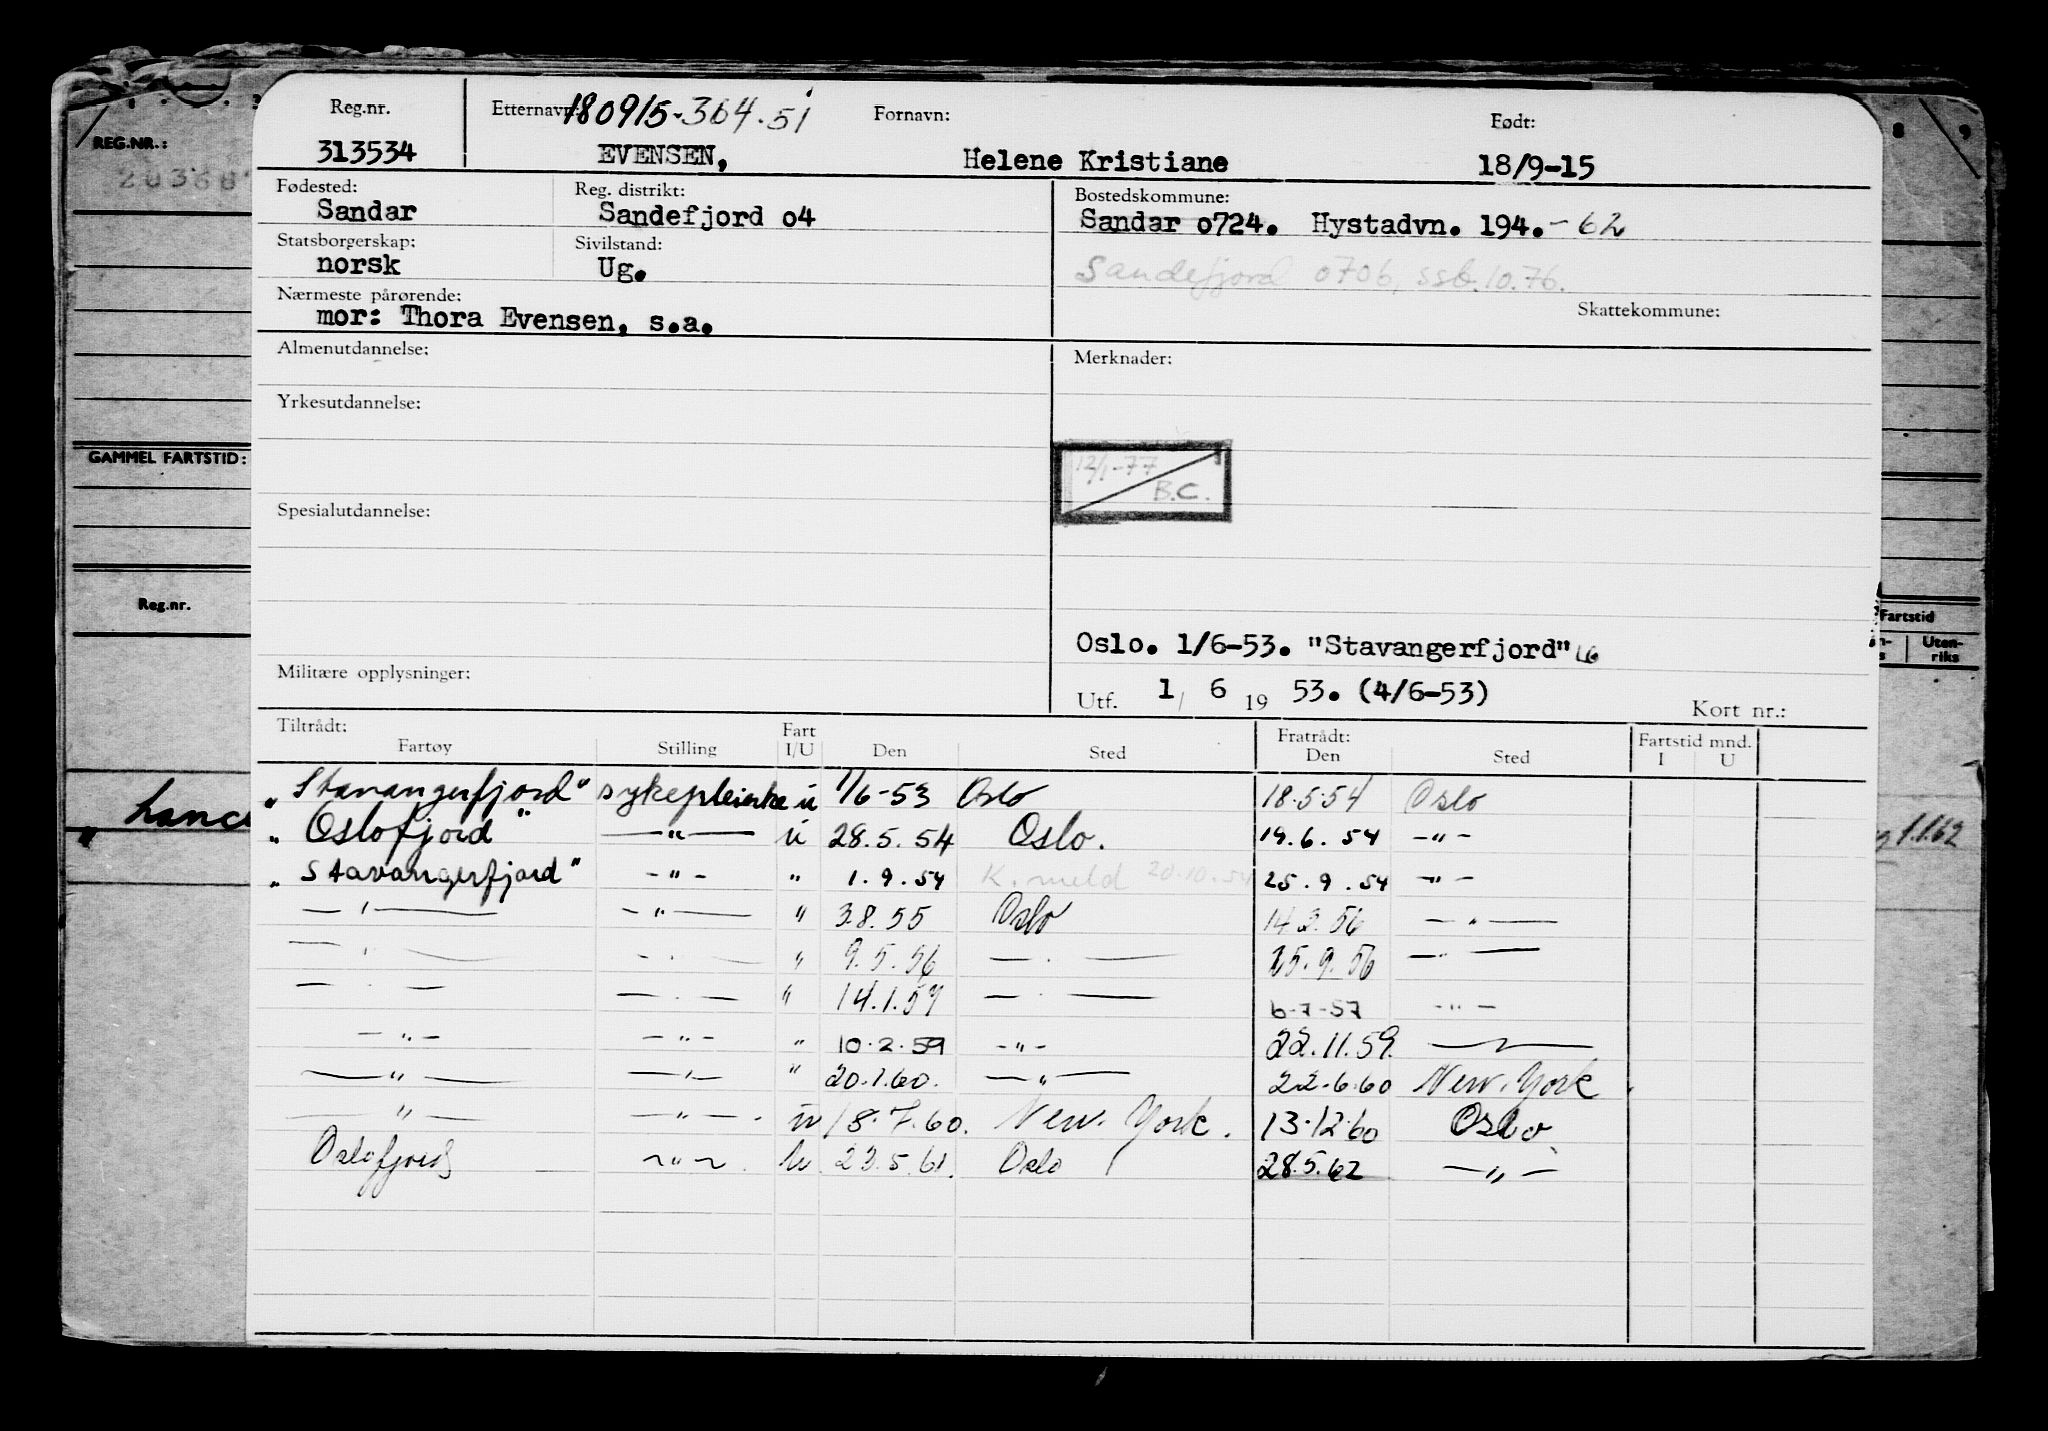 Reg.nr. Etternavn: 180915-364.51 Fornavn: Født:
313534 EVENSEN, Helene Kristiane 18/9-15
Fødested: Reg. distrikt: Bostedskommune:
Sandar Sandefjord o4 Sandar o724. Hystadvn. 194.-62
Statsborgerskap: Sivilstand:
norsk Ug. Sandefjord 0706, ssb.10.76.
Nærmeste pårørende: Skattekommune:
mor: Thora Evensen, s.a.
Almenutdannelse: Merknader:
Yrkesutdannelse:
12/1-77
B.C.
Spesialutdannelse:
Oslo. 1/6-53. "Stavangerfjord"
Militære opplysninger:
Utf. 1/ 6 19 53. (4/6-53) Kort nr.:
Tiltrådt: Fart Fratrådt: Fartstid mnd.
Fartøy Stilling I/U Den Sted Den Sted I U
"Stavangerfjord" sykepleierske u 1/6-53 Oslo 18.5.54 Oslo
"Oslofjord" —"— u 28.5.54 Oslo. 19.6.54 -"-
"Stavangerfjord" -"- " 1.9.54 K.meld 20.10.54 25.9.54 -"-
—"— —"— " 3.8.55 Oslo 14.3.56 —"—
—"— —"— " 9.5.56 —"— 25.9.56 —"—
—"— —"— " 14.1.57 —"— 6-7-57 -"-
-"- -"- " 10.2.59 -"- 22.11.59. —"—
—"— —"— " 20.1.60. —"— 22.6.60 New. York.
—"— —"— u 18.7.60. New. York. 13.12.60 Oslo
Oslofjord —"— u 23.5.61. Oslo 28.5.62 —"—
REG.NR.:
GAMMEL FARTSTID:
Reg.nr.
8 9
Fartstid
Uten-
riks
1.1.62